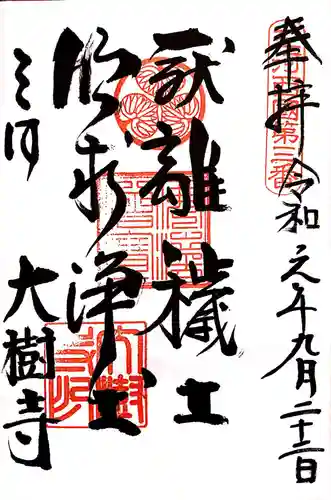 奉拝
令和元年九月二十二日
厭離穢土
欣求浄土
三河
大樹寺